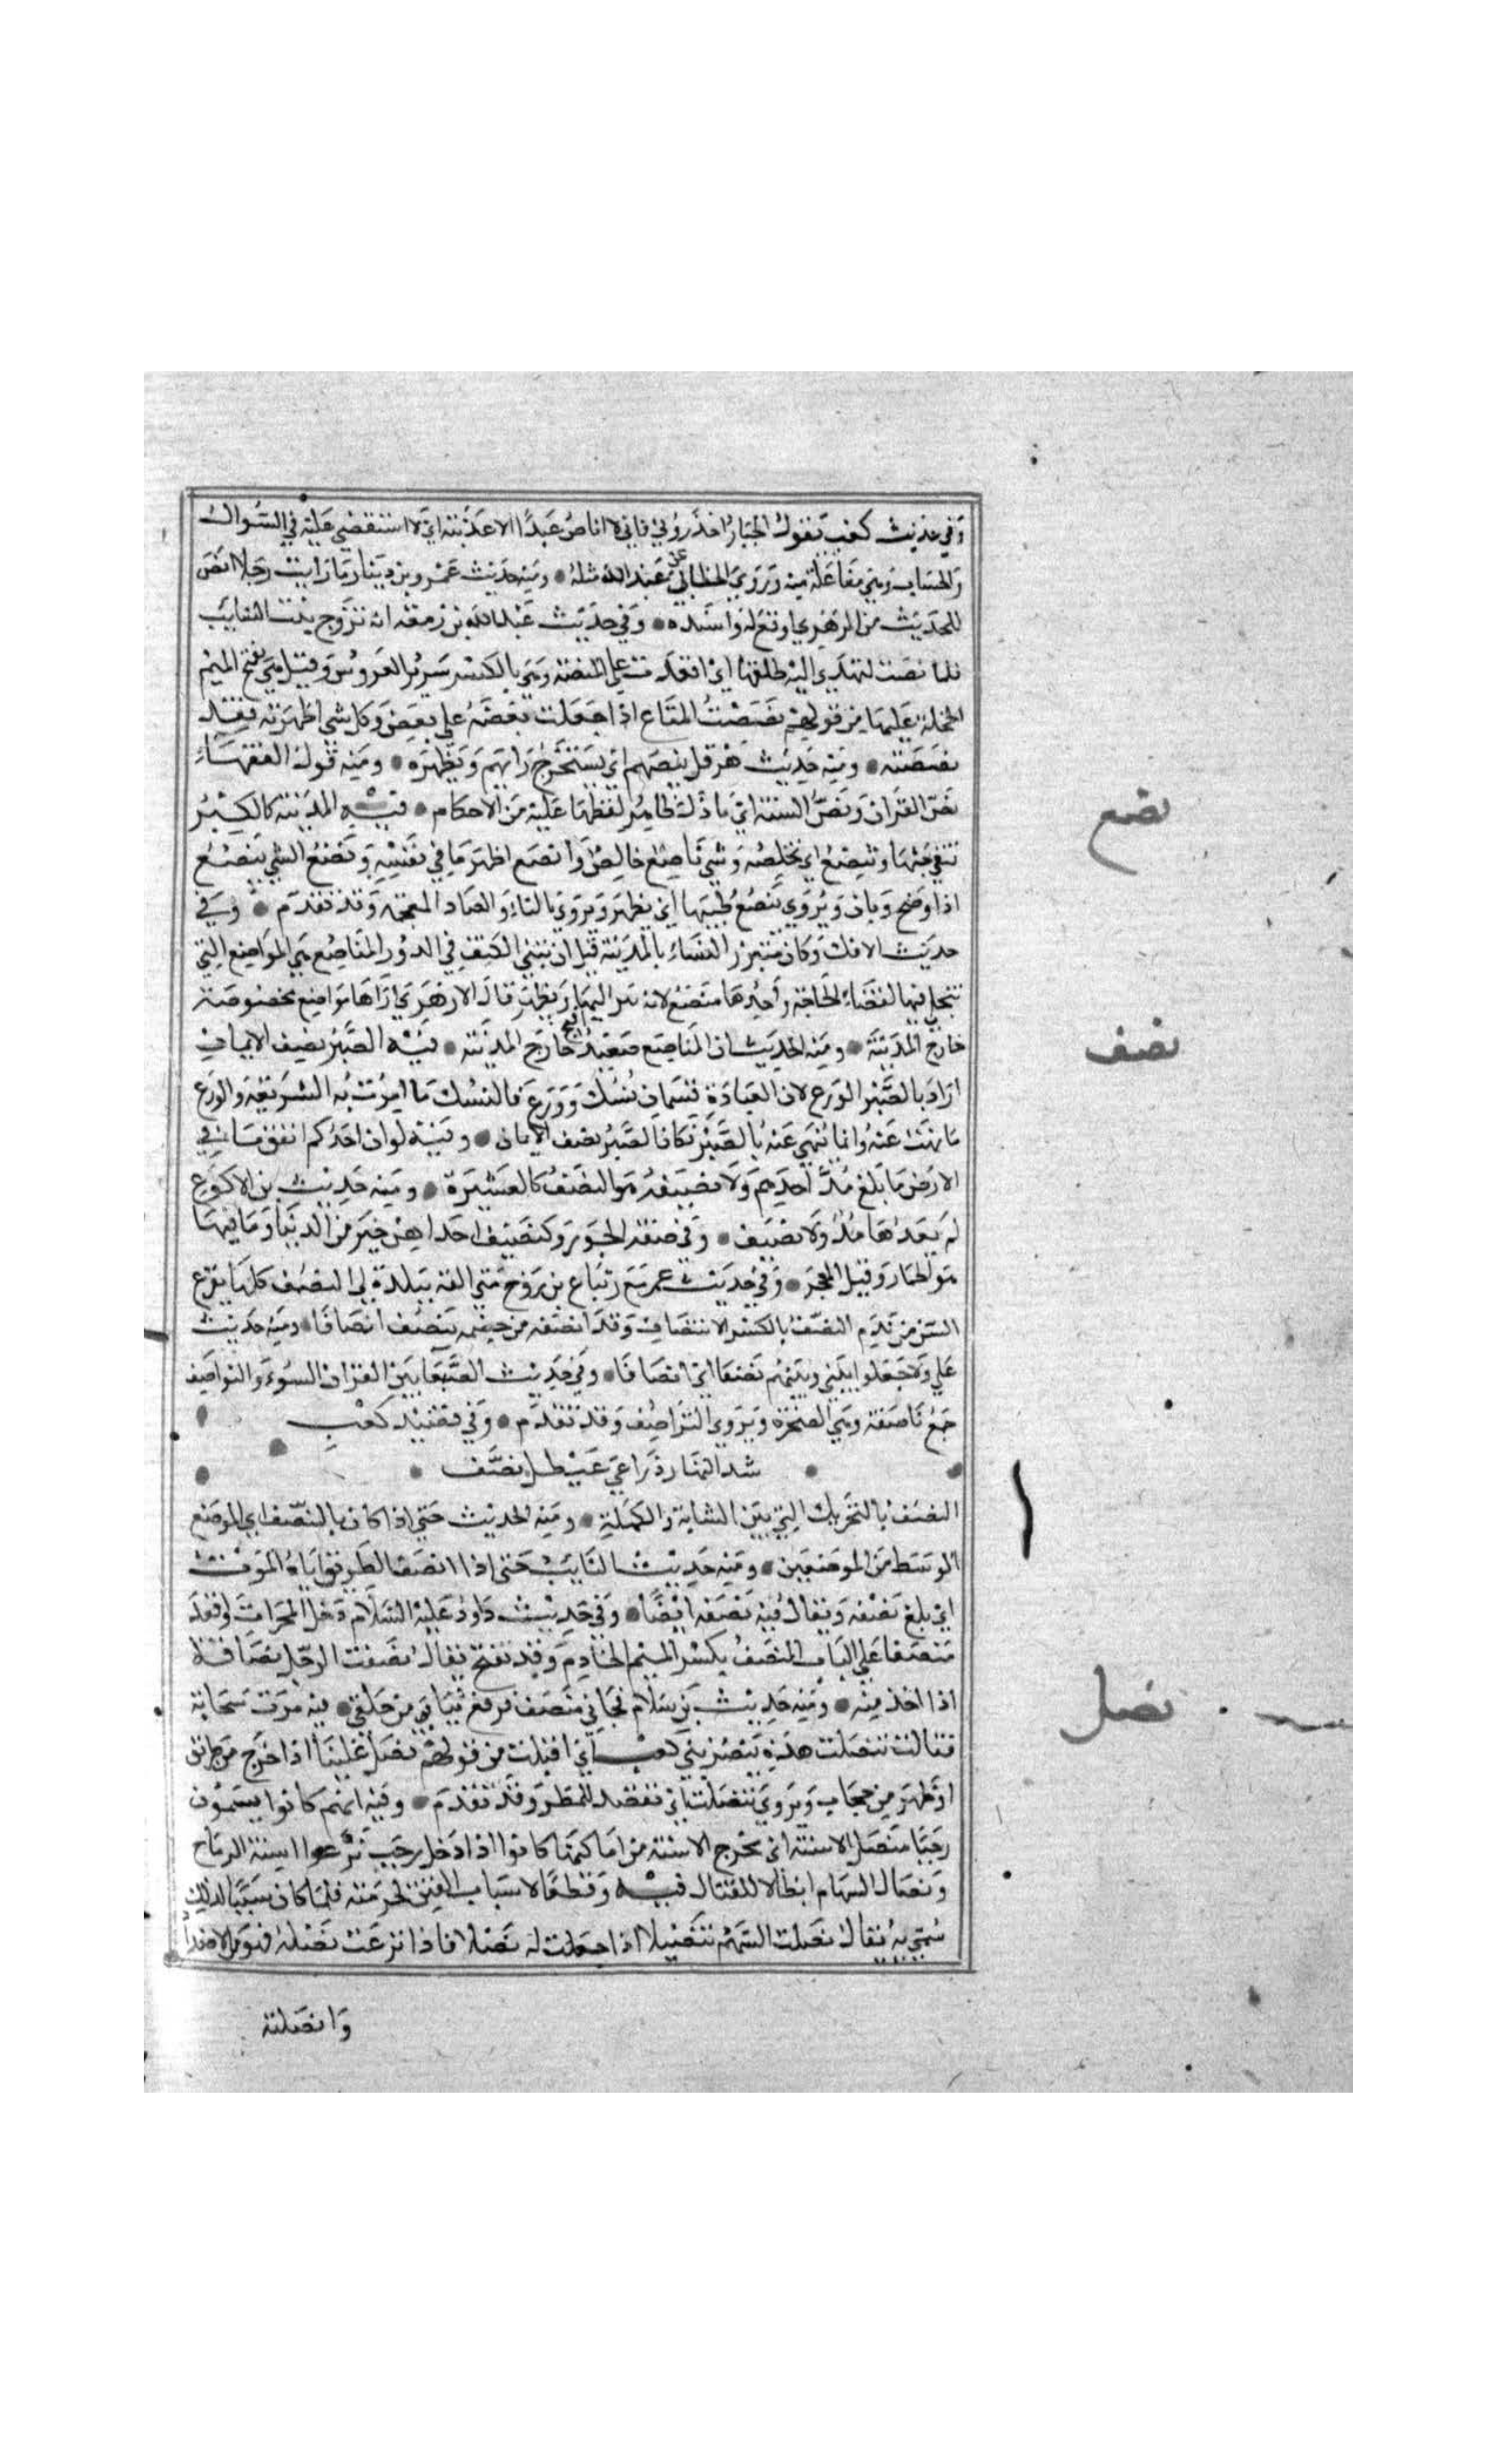 وفي حديث كعب يقول الجبار احذروني فاني لا اناص عبدا الا عذبته اي لا استقصي عليه في السوال
والحساب وهي مفاعلة منه ويروي الخطابي عن عبدالله مثله ومنه حديث عمرو بن دينار ما رايت رجلا انص
للحديث من الزهري اي ارفع له واسنده وفي حديث عبدالله بن زمعة انه تزوج بنت السايب
فلما نصت لتهدي اليه طلقها اي اقعدت على المنصة وهي بالكسر سرير العروس وقيل هي بفتح الميم
الحجلة عليها من قولهم نصصت المتاع اذا جعلت بعضه على بعض وكل شي اظهرته فقد
نصصته ومنه حديث هرقل ينصهم اي يستخرج رايهم ويظهره ومنه قول الفقهاء
نص القران ونص السنة اي ما دل ظاهر لفظها عليه من الاحكام فيه المدينة كالكير
تنفي خبثها وتنصع اي تخلصه وشي ناصع خالص وانصع اظهر ما في نفسه ونصع الشي ينصع
اذا وضح وبان ويروي ينصع طيبها اي يظهر ويروي بالباء والضاد المعجمة وقد تقدم وفي
حديث الافك وكان متبرز النساء بالمدينة قبل ان تبني الكنف في الدور المناصع هي المواضع التي
يتخلي فيها لقضاء الحاجة واحدها منصع لانه يبرز اليها ويظهر قال الازهري اراها مواضع مخصوصة
خارج المدينة ومنه الحديث ان المناصع صعيد افيح خارج المدينة فيه الصبر نصف الايمان
اراد بالصبر الورع لان العبادة قسمان نسك وورع فالنسك ما امرت به الشريعة والورع
ما نهت عنه وانما ينهي عنه بالصبر فكان الصبر نصف الايمان وفيه لو ان احدكم انفق ما في
الارض ما بلغ مد احدهم ولا نصيفه هو النصف كالعشير في العشر ومنه حديث بن الاكوع
لم يغدها مد ولا نصيف وفي صفة الحور ولنصيف احداهن خير من الدنيا وما فيها
هو الخمار وقيل المعجر وفي حديث عمر مع زنباع بن روح متي الق ببلدة لي النصف كلها يقرع
السن من ندم النصف بالكسر الانتصاف وقد انصفه من خصمه ينصف انصافا ومنه حديث
علي ولا جعلوا بيني وبينهم نصفا اي انصافا وفي حديث الصبغا بين القران السوء والنواصف
جمع ناصفة وهي الصخرة ويروي التراصف وقد تقدم وفي قصيد كعب
شد النهار ذراعي عيطل نصف
النصف بالتحريك التي بين الشابة والكهلة ومنه الحديث حتي اذا كان بالمنصف اي الموضع
الوسط من الموضعين ومنه حديث التايب حتى اذا انصف الطريق اتاه الموت
اي بلغ نصفه ويقال فيه نصفه ايضا وفي حديث داود عليه السلام دخل المحراب واقعد
منصفا على الباب المنصف بكسر الميم الخادم وقد تفتح يقال نصفت الرجل نصافة
اذا اخذمته ومنه حديث بن سلام فجاني منصف فرفع ثيابي من خلفي فيه مرت سحابة
فقالت تنصلت هذه بنصر بني كعب اي اقبلت من قولهم نصل علينا اذا خرج من طريق
او ظهر من حجاب ويروي تنصلت اي تقصد للمطر وقد تقدم وفيه انهم كانوا يسمون
رجبا منصل الاسنة اي مخرج الاسنة من اماكنها كانوا اذا دخل رجب نزعوا اسنة الرماح
ونصال السهام ابطالا للقتال فيه وقطعا لاسباب الفتن لحرمته فلما كان سببا لذلك
سمي به يقال نصلت السهم تنصيلا اذا جعلت له نصلا فاذا نزعت نصله فهو من الاضداد
وانصلته
نصع
نصف
نصل